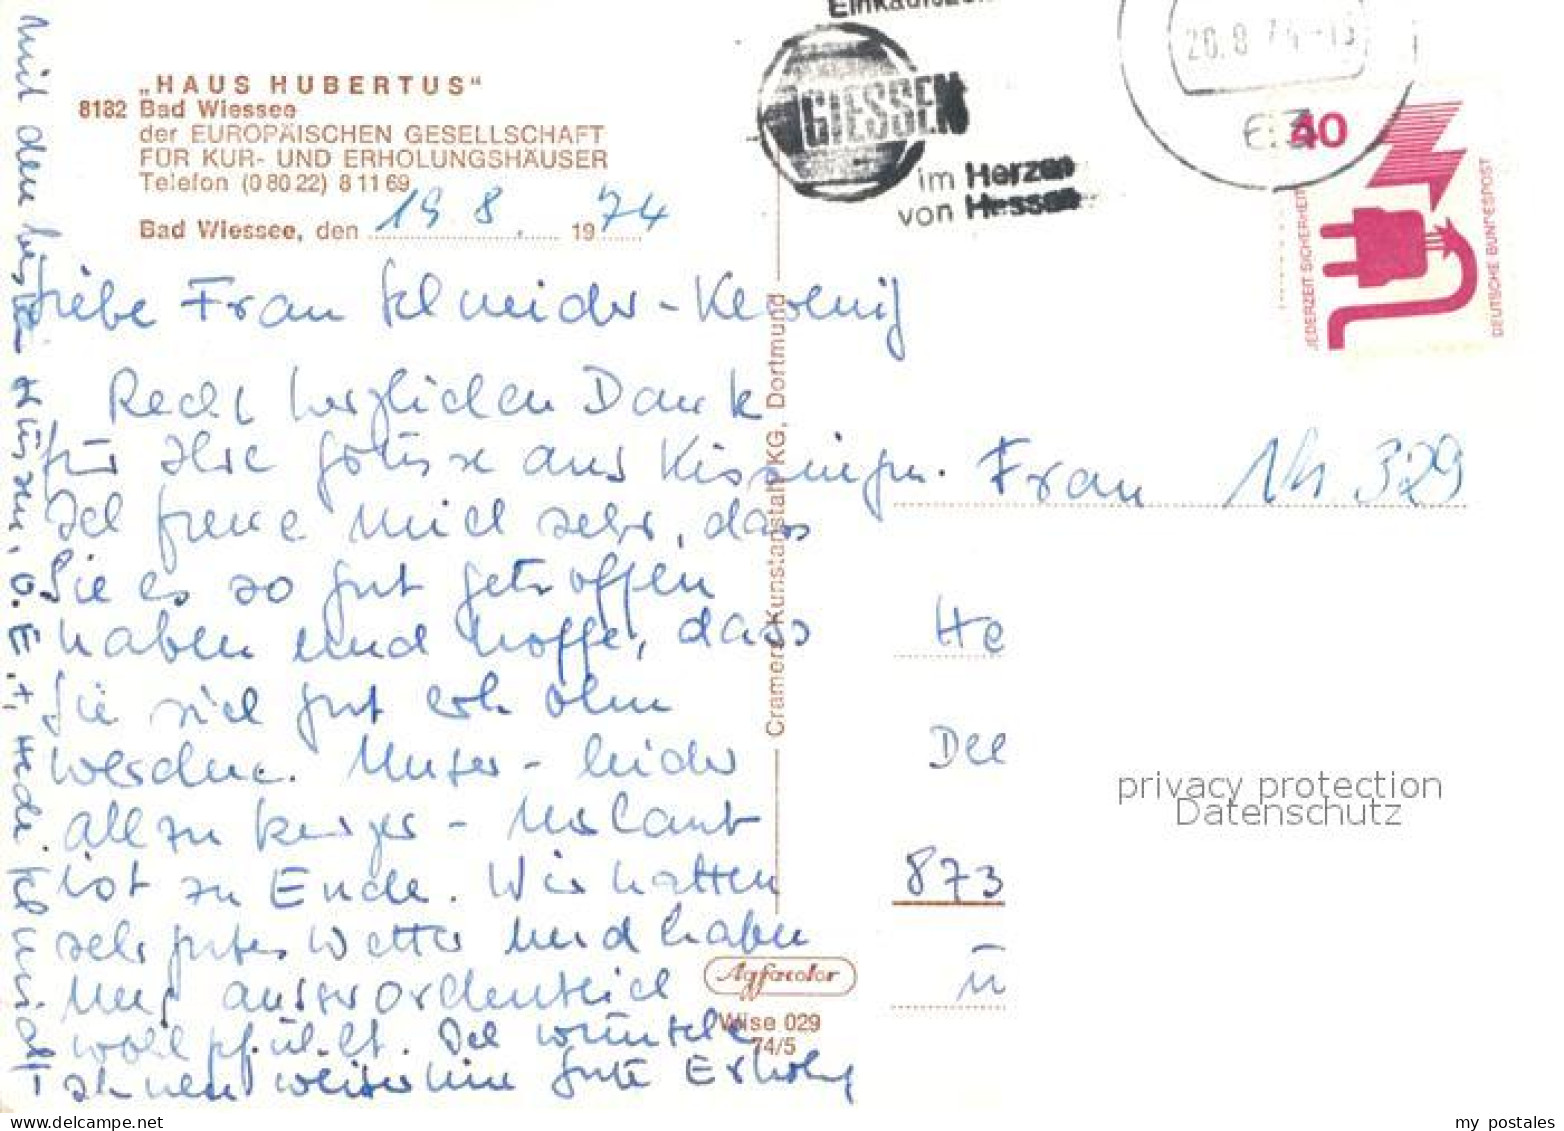 Einkaufszen
GIESSEN
im Herzen
von Hessen
20.8.74-13
63
40
JEDERZEIT SICHERHEIT
DEUTSCHE BUNDESPOST
„HAUS HUBERTUS“
8182 Bad Wiessee
der EUROPÄISCHEN GESELLSCHAFT
FÜR KUR- UND ERHOLUNGSHÄUSER
Telefon (0 80 22) 8 11 69
Bad Wiessee, den 19 8. 1974
Liebe Frau Schneider-
Recht herzlichen Dank
für Ihre Grüsse aus Kissingen.
Ich freue mich sehr, dass
Sie es so gut getroffen
haben und hoffe, dass
Sie sich gut erholen
werden. Unser - leider
allzu kurzer - Urlaub
ist zu Ende. Wir hatten
sehr gutes Wetter und haben
uns ausserordentlich
wohlgefühlt. Ich wünsche
Ihnen weiterhin gute Erholung
mit den besten Grüssen, v. E. +, Hede Schmidt
Cramers Kunstanstalt KG, Dortmund
Agfacolor
Wise 029
74/5
Frau 329
He
Del
873
ü
privacy protection
Datenschutz
my postales